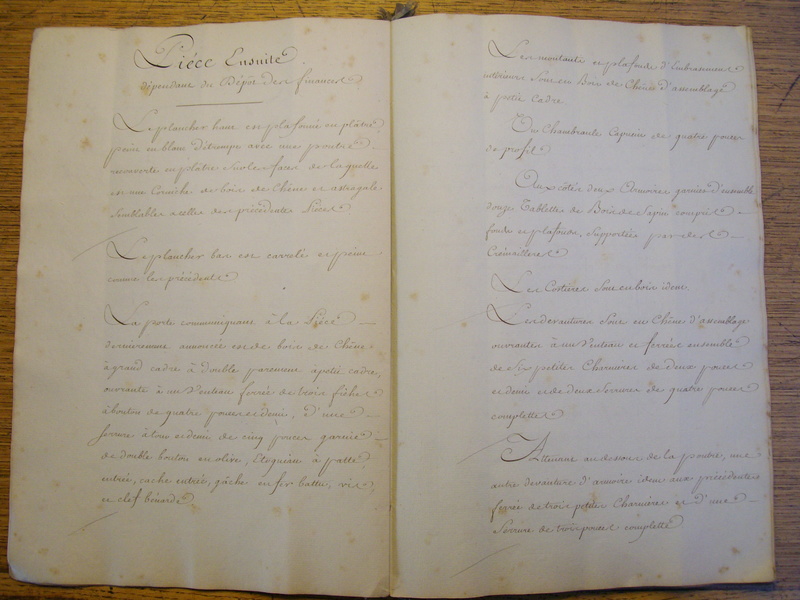 Piéce Ensuite.
dépendant du Dépôt des finances
Le plancher haut est plafonné en plâtre
peint en blanc détrempe avec une poutre
recouverte en plâtre sur les faces de laquelle
est une Corniche de bois de Chêne et astragale
semblables à celles des précédentes Pièces
Le plancher bas est carrelé et peint
comme les précédents
La porte communiquant à la Pièce
dernierement annoncée est de bois de Chêne
à grand cadre à double parement à petit cadre,
ouvrante à un Venteau ferrée de trois fiches
à bouton de quatre pouces et demi, d'une
serrure à tour et demi de cinq pouces garnie
de double bouton en olive, à patte,
entrée, cache entrée, gâche en fer battu, vis,
et clef bénarde
Les montants et plafond d'Embrasement
intérieur sont en Bois de Chêne d'assemblage
à petit cadre
Un Chambranle Capucin de quatre pouces
de profil
Aux côtés deux Armoires garnies d'ensemble
douze Tablettes de Bois de Sapin compris
fonds et plafonds, supportées par des
Crémaillères
Les Costières sont en bois idem
Les devantures sont en Chêne d'assemblage
ouvrantes à un Venteau et ferrées ensemble
de Six petites Charnières de deux pouces
et demi et de deux Serrures de quatre pouces
complettes
Attenant au dessous de la poutre, une
autre devanture d'armoire idem aux précédentes
ferrée de trois petites Charnières et d'une
Serrure de trois pouces complette